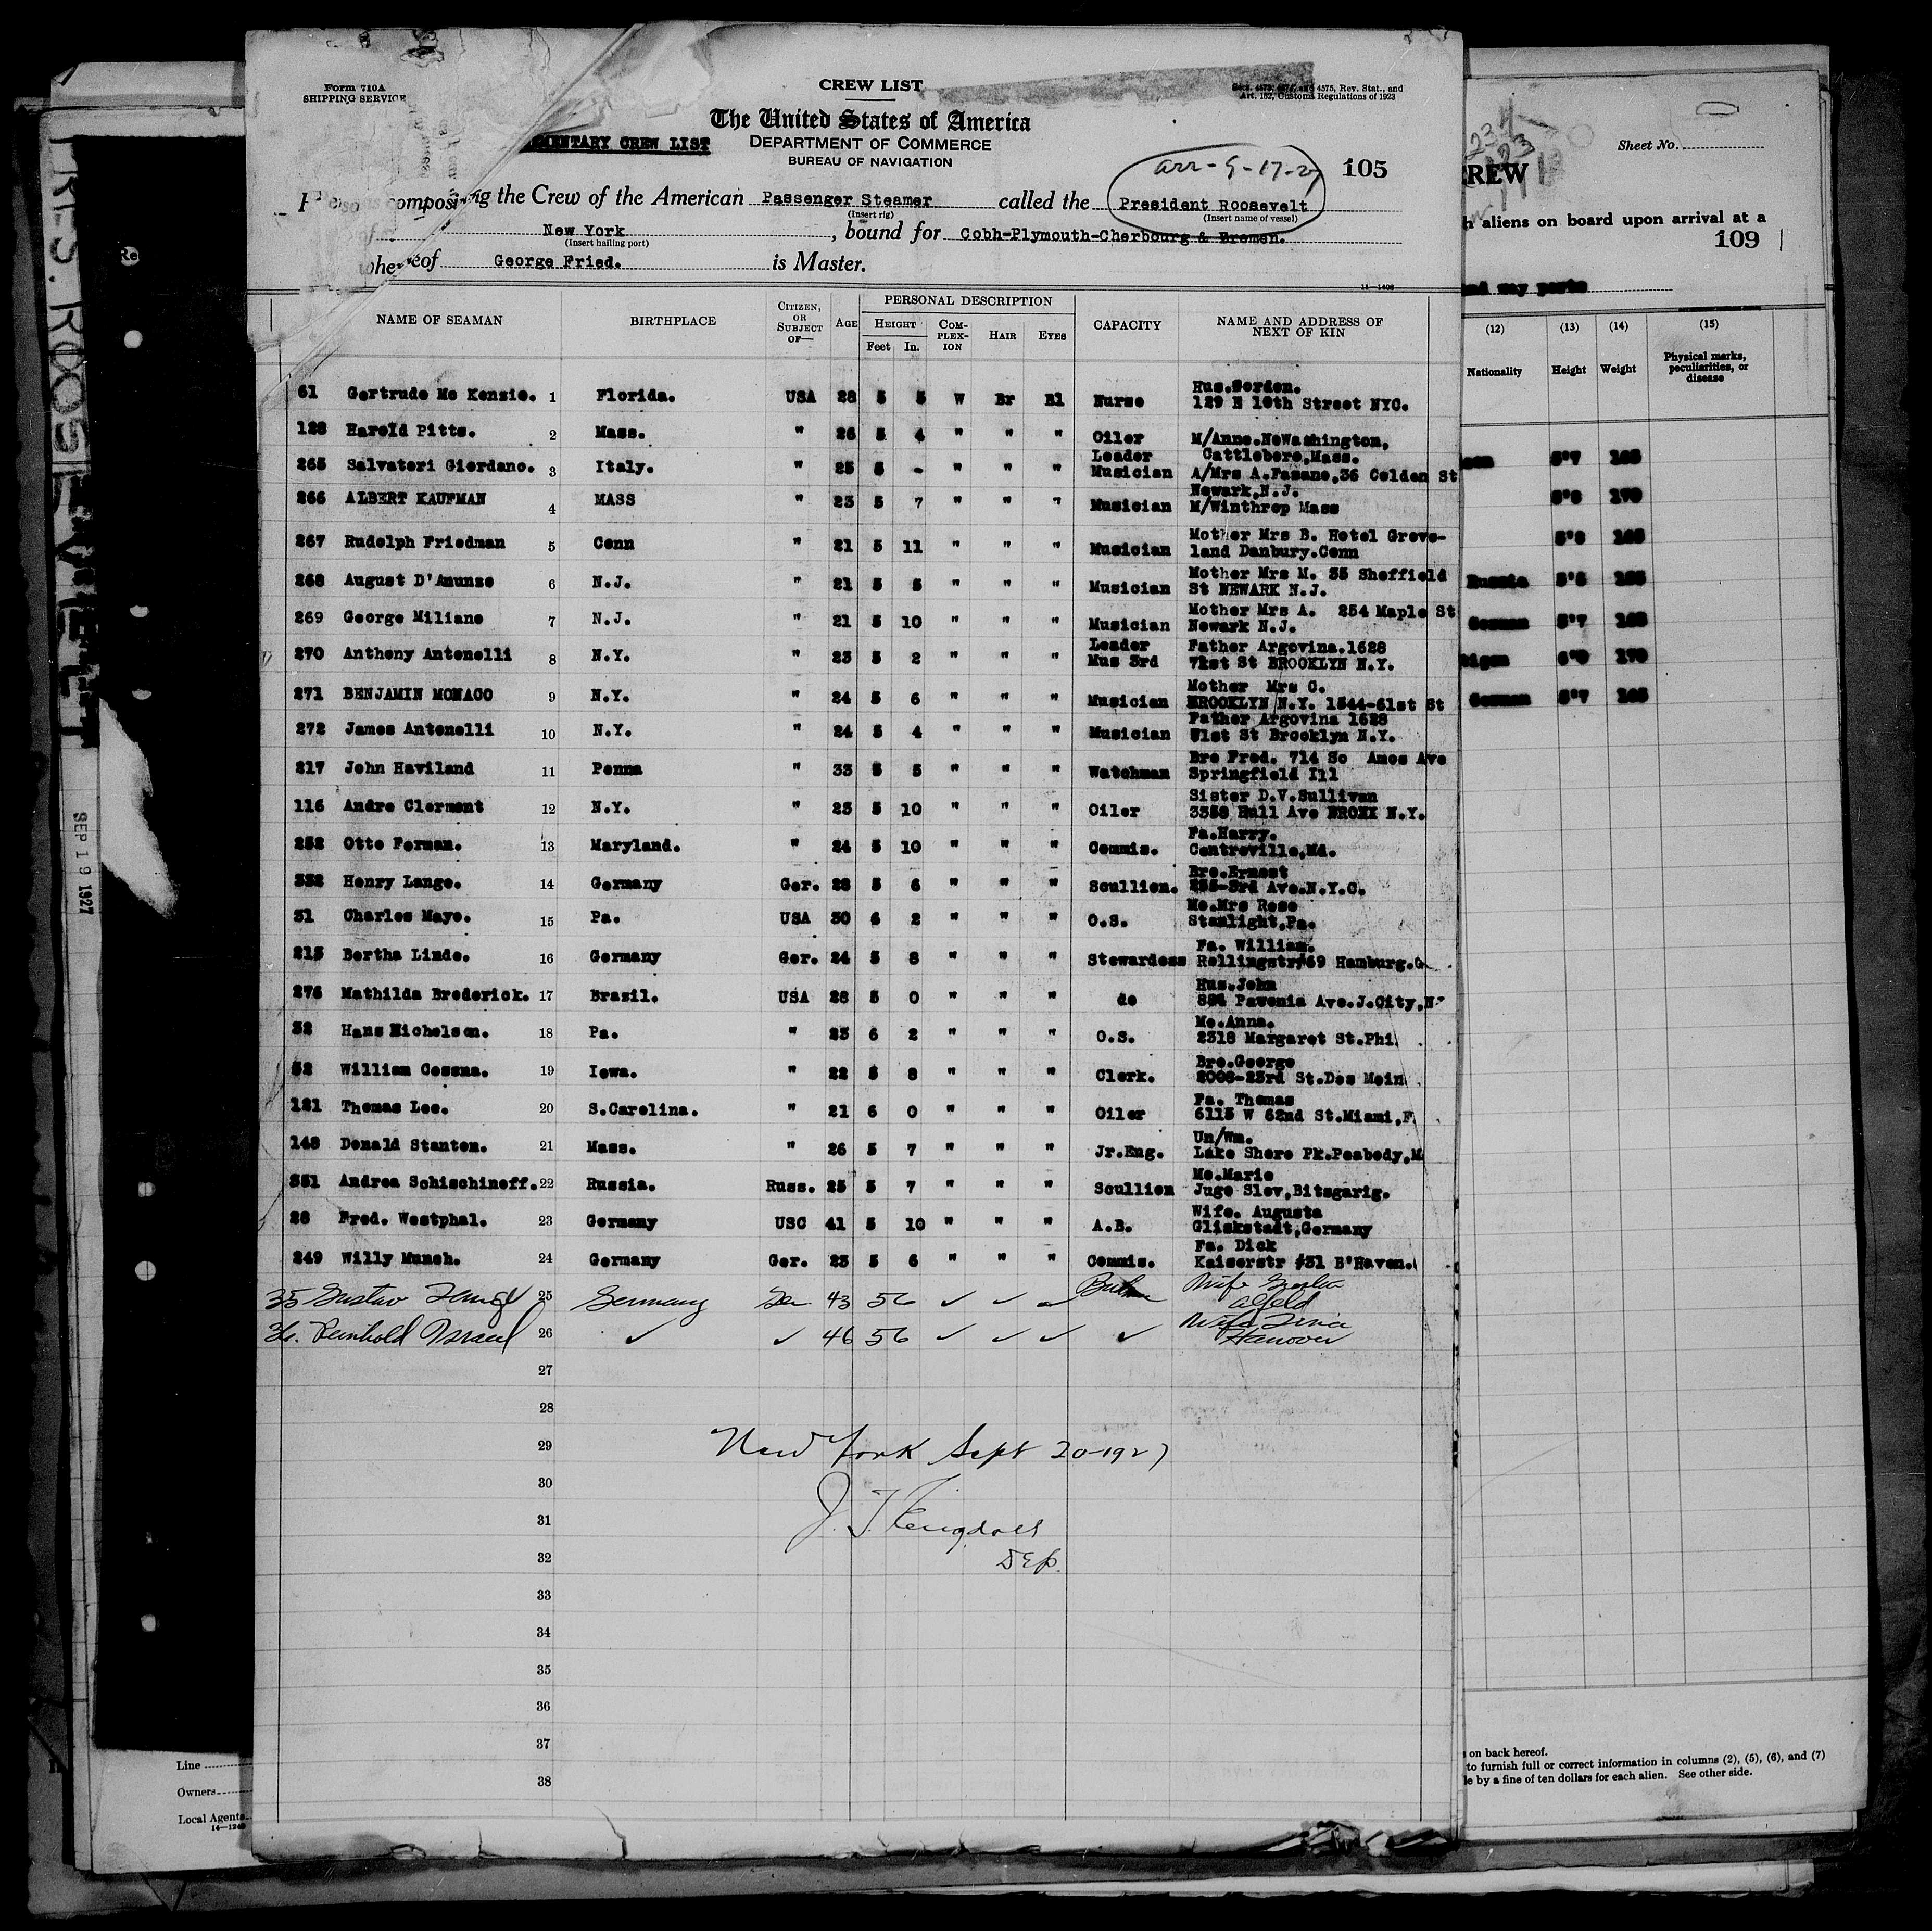 Form 710A
SHIPPING SERVICE
CREW LIST
4575, Rev. Stat., and
Art. 162, Customs Regulations of 1923
The United States of America
MENTARY CREW LIST
DEPARTMENT OF COMMERCE
BUREAU OF NAVIGATION
arr-9-17-27
105
composing the Crew of the American Passenger Steamer called the President Roosevelt
(Insert rig) (Insert name of vessel)
of New York, bound for Cobh-Plymouth-Cherbourg & Bremen.
(Insert hailing port)
whereof George Fried. is Master.
11—1406
NAME OF SEAMAN BIRTHPLACE CITIZEN, OR SUBJECT OF— AGE PERSONAL DESCRIPTION CAPACITY NAME AND ADDRESS OF NEXT OF KIN
HEIGHT Feet In. COM-PLEX-ION HAIR EYES
61 Gertrude Mc Kenzie. 1 Florida. USA 28 5 5 W Br Bl Nurse Hus.Gorden. 129 E 10th Street NYC.
128 Harold Pitts. 2 Mass. " 26 5 4 " " " Oiler M/Anne.NoWashington, Cattleboro,Mass.
265 Salvatori Giordano. 3 Italy. " 25 5 - " " " Leader Musician A/Mrs A.Fasano,36 Colden St Newark,N.J.
266 ALBERT KAUFMAN 4 MASS " 23 5 7 " " " Musician M/Winthrop Mass
267 Rudolph Friedman 5 Conn " 21 5 11 " " " Musician Mother Mrs B. Hotel Grove-land Danbury.Conn
268 August D'Anunzo 6 N.J. " 21 5 5 " " " Musician Mother Mrs M. 35 Sheffield St NEWARK N.J.
269 George Miliano 7 N.J. " 21 5 10 " " " Musician Mother Mrs A. 254 Maple St Newark N.J.
270 Anthony Antonelli 8 N.Y. " 23 5 2 " " " Leader Mus 3rd Father Argovina.1628 71st St BROOKLYN N.Y.
271 BENJAMIN MONACO 9 N.Y. " 24 5 6 " " " Musician Mother Mrs C. BROOKLYN N.Y. 1544-61st St
272 James Antonelli 10 N.Y. " 24 5 4 " " " Musician Father Argovina 1628 71st St Brooklyn N.Y.
217 John Haviland 11 Penna " 33 5 5 " " " Watchman Bro Fred. 714 So Amos Ave Springfield Ill
116 Andre Clermont 12 N.Y. " 23 5 10 " " " Oiler Sister D.V.Sullivan 3358 Hull Ave BRONX N.Y.
252 Otto Forman. 13 Maryland. " 24 5 10 " " " Commis. Fa.Harry. Centreville,Md.
332 Henry Lange. 14 Germany Ger. 28 5 6 " " " Scullion. Bro.Ernest 235-3rd Ave.N.Y.C.
31 Charles Mayo. 15 Pa. USA 30 6 2 " " " O.S. Mo.Mrs Rose Stanlight,Pa.
215 Bertha Linde. 16 Germany Ger. 24 5 8 " " " Stewardess Fa. William. Rellingstr#69 Hamburg.G
276 Mathilda Brederick. 17 Brazil. USA 28 5 0 " " " do Hus.John 884 Pavonia Ave.J.City,N
32 Hans Nicholson. 18 Pa. " 23 6 2 " " " O.S. Mo.Anna. 2318 Margaret St.Phi
52 William Cessna. 19 Iowa. " 22 5 8 " " " Clerk. Bro.George 2008-23rd St.Des Moin
121 Thomas Lee. 20 S.Carolina. " 21 6 0 " " " Oiler Fa. Thomas 6115 W 62nd St.Miami,F
148 Donald Stanton. 21 Mass. " 26 5 7 " " " Jr.Eng. Un/Wm. Lake Shore Pk.Peabody,M
351 Andrea Schischineff. 22 Russia. Russ. 25 5 7 " " " Scullion Mo.Marie Jugo Slov,Bitsgarig.
28 Fred. Westphal. 23 Germany USC 41 5 10 " " " A.B. Wife. Augusta Glinkstadt,Germany
249 Willy Munch. 24 Germany Ger. 23 5 6 " " " Commis. Fa. Dick Kaiserstr #31 B'Haven.
35 Gustav 25 Germany Ger 43 56 ✓ ✓ ✓ Wife Alfeld
36. Reinhold Israel 26 ✓ ✓ 46 56 ✓ ✓ ✓ ✓ Wife Hanover
27
28
29
New York Sept 20-1927
30
31
32
Dep.
33
34
35
36
37
38
PRES. ROOSEVELT
SEP 19 1927
Line
Owners
Local Agents
Sheet No.
CREW
aliens on board upon arrival at a
109
and way ports
(12) (13) (14) (15)
Nationality Height Weight Physical marks, peculiarities, or disease
5'7 165
170
Russia
German 5'7
170
German 5'7 165
on back hereof.
to furnish full or correct information in columns (2), (5), (6), and (7)
by a fine of ten dollars for each alien. See other side.